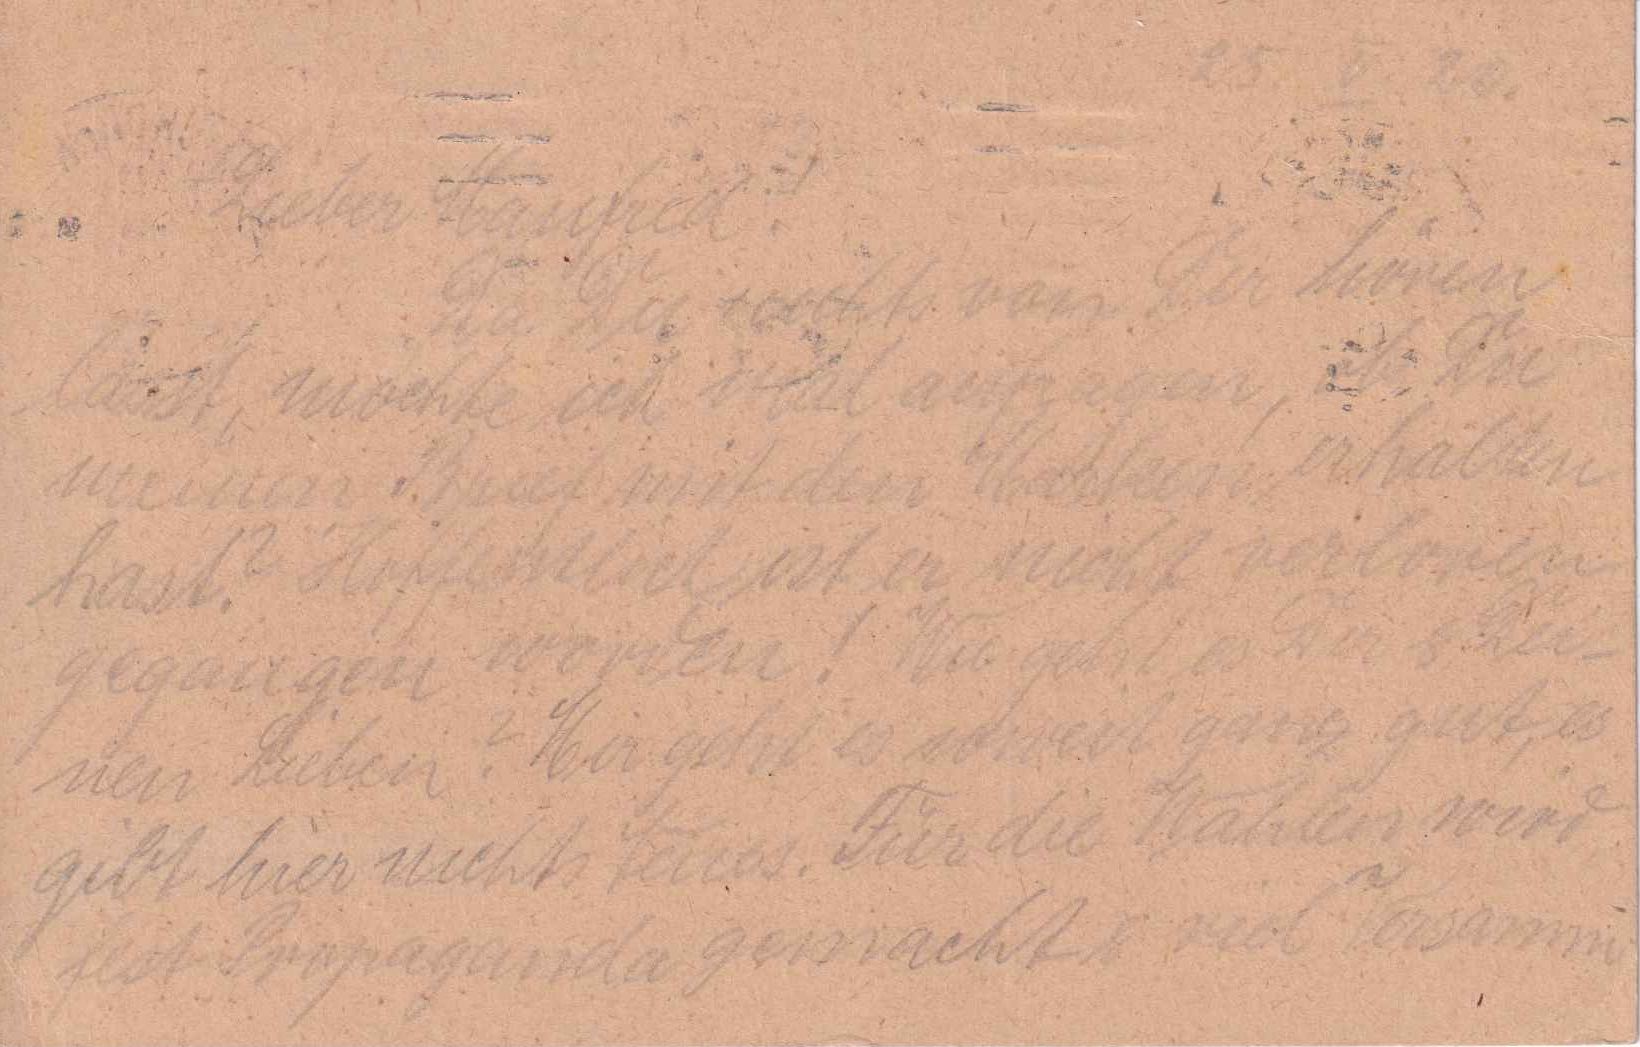 25 V. 20.
Lieber Manfred!
Da Du nichts von Dir hören
lässt, möchte ich mal anfragen, ob Du
meinen Brief mit den Marken erhalten
hast? Hoffentlich ist er nicht verloren
gegangen worden! Wie geht es Dir & Dei-
nen Lieben? Mir geht es soweit ganz gut, es
gibt hier nichts Neues. Für die Wahlen wird
fest Propaganda gemacht & viel Versamm-